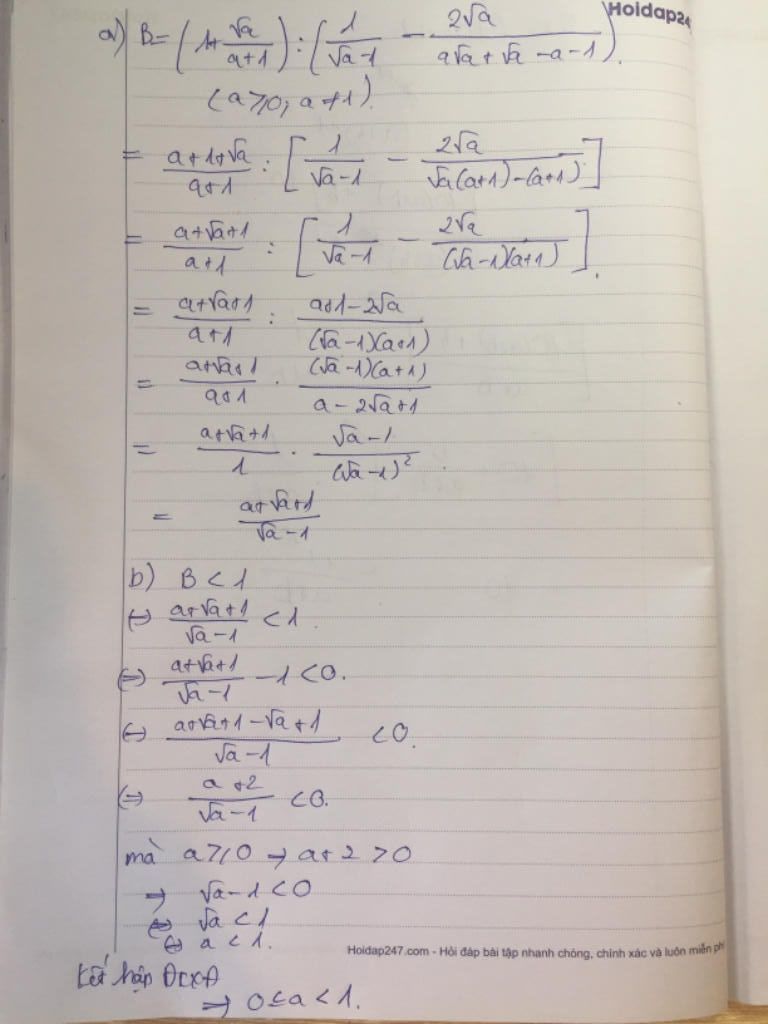 Hoidap24
a) B = (1 + √a/(a+1)) : (1/(√a-1) - 2√a/(a√a + √a - a - 1)).
(a ≥ 0; a ≠ 1).
= (a+1+√a)/(a+1) : [1/(√a-1) - 2√a/(√a(a+1)-(a+1))]
= (a+√a+1)/(a+1) : [1/(√a-1) - 2√a/((√a-1)(a+1))].
= (a+√a+1)/(a+1) : (a+1-2√a)/((√a-1)(a+1))
= (a+√a+1)/(a+1) · ((√a-1)(a+1))/(a-2√a+1)
= (a+√a+1)/1 · (√a-1)/(√a-1)²
= (a+√a+1)/(√a-1)
b) B < 1
⇔ (a+√a+1)/(√a-1) < 1.
⇔ (a+√a+1)/(√a-1) - 1 < 0.
⇔ (a+√a+1-√a+1)/(√a-1) < 0.
⇔ (a+2)/(√a-1) < 0.
mà a ≥ 0 → a+2 > 0
⇒ √a-1 < 0
⇔ √a < 1
⇔ a < 1.
Hoidap247.com - Hỏi đáp bài tập nhanh chóng, chính xác và luôn miễn phí
Kết hợp ĐKXĐ
⇒ 0 ≤ a < 1.